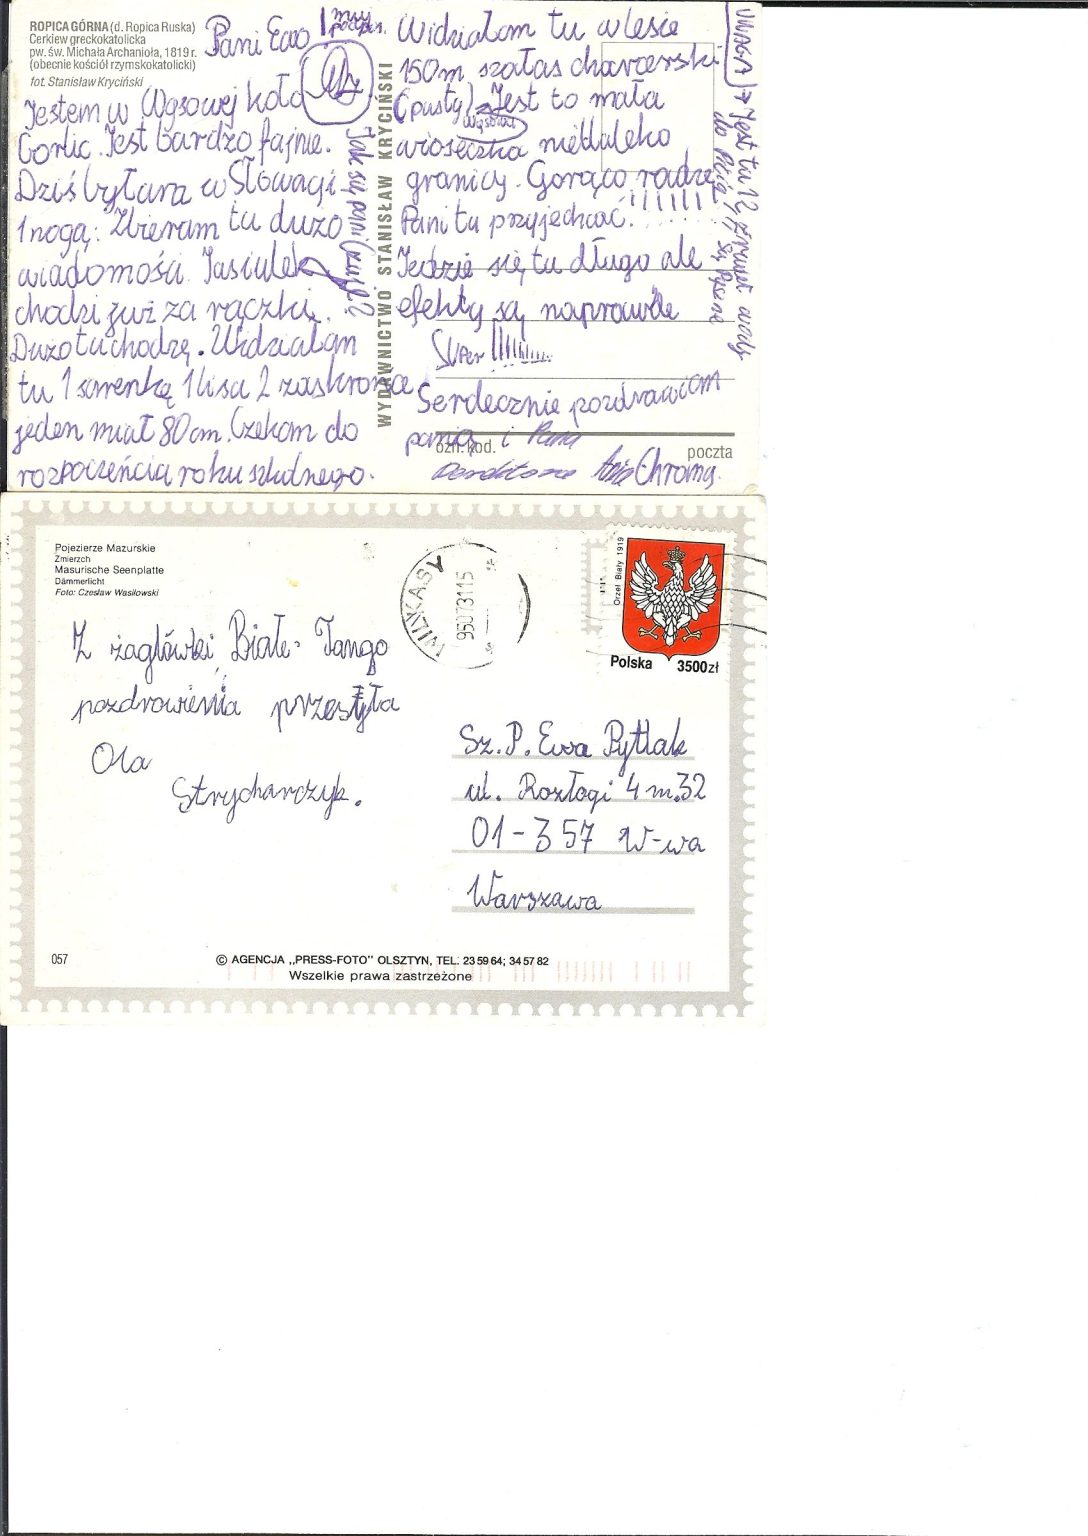 ROPICA GÓRNA (d. Ropica Ruska)
Cerkiew greckokatolicka
pw. św. Michała Archanioła, 1819 r.
(obecnie kościół rzymskokatolicki)
fot. Stanisław Kryciński
Pani Ewo
Jestem w Wysowej koło
Gorlic. Jest bardzo fajnie.
Dziś byłam w Słowagi
1 nogą. Zbieram tu dużo
wiadomości. Jasiulek
chodzi już za rączki.
Dużo tu chodzę. Widziałam
tu 1 sarenkę 1 lisa 2 zaskrońce
jeden miał 80 cm. Czekam do
rozpoczęńcia roku szkolnego.
muj
podpis.
Jak się pani czuje?
WYDAWNICTWO STANISŁAW KRYCIŃSKI
Widziałam tu w lesie
150 m szałas charcerski
(pusty). Jest to mała
Wysowa
wioseczka niedaleko
granicy. Gorąco radzę
Pani tu przyjechać!!!!!!!
Jedzie się tu długo ale
efekty są naprawde
super!!!!!!!!!...
Serdecznie pozdrawiam
panią i Pana
Ania Chroma.
ozn. kod.
poczta
UWAGA → Jest tu 12 źrudeł wody
do picia, są pyszne
Pojezierze Mazurskie
Zmierzch
Masurische Seenplatte
Dämmerlicht
Foto: Czesław Wasilowski
MIŁKASY
95073115
Orzeł Biały 1919
Polska 3500zł
Z żaglówki Białe-Tango
pozdrowienia przesyła
Ola
Strycharczyk.
Sz. P. Ewa Pytlak
ul. Rozłogi 4 m.32
01-357 W-wa
Warszawa
057
© AGENCJA „PRESS-FOTO" OLSZTYN, TEL: 23 59 64; 34 57 82
Wszelkie prawa zastrzeżone